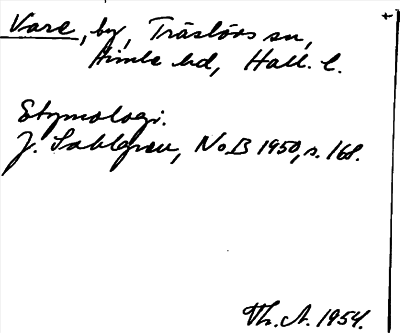 Vare, by, Träslövs sn,
Himle hd, Hall. l.
Etymologi.
J. Sahlgren, NoB 1950, s. 168.
Th. A. 1954.